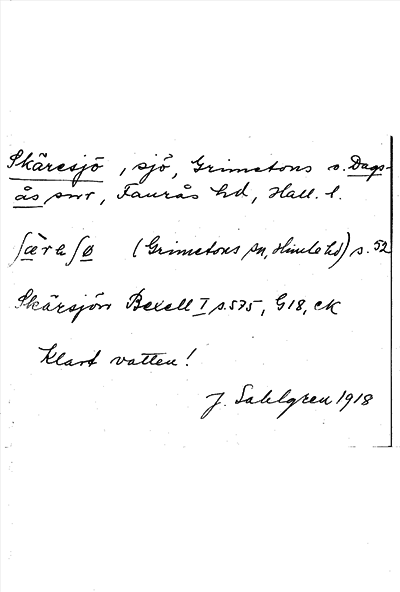 Skäresjö, sjö, Grimetons o. Dags-
ås snr, Faurås hd, Hall. l.
ʃæ̀raʃø (Grimetons sn, Himle hd) s. 52
Skärsjön Bexell I s. 575, G18, ek
Klart vatten!
J. Sahlgren 1918